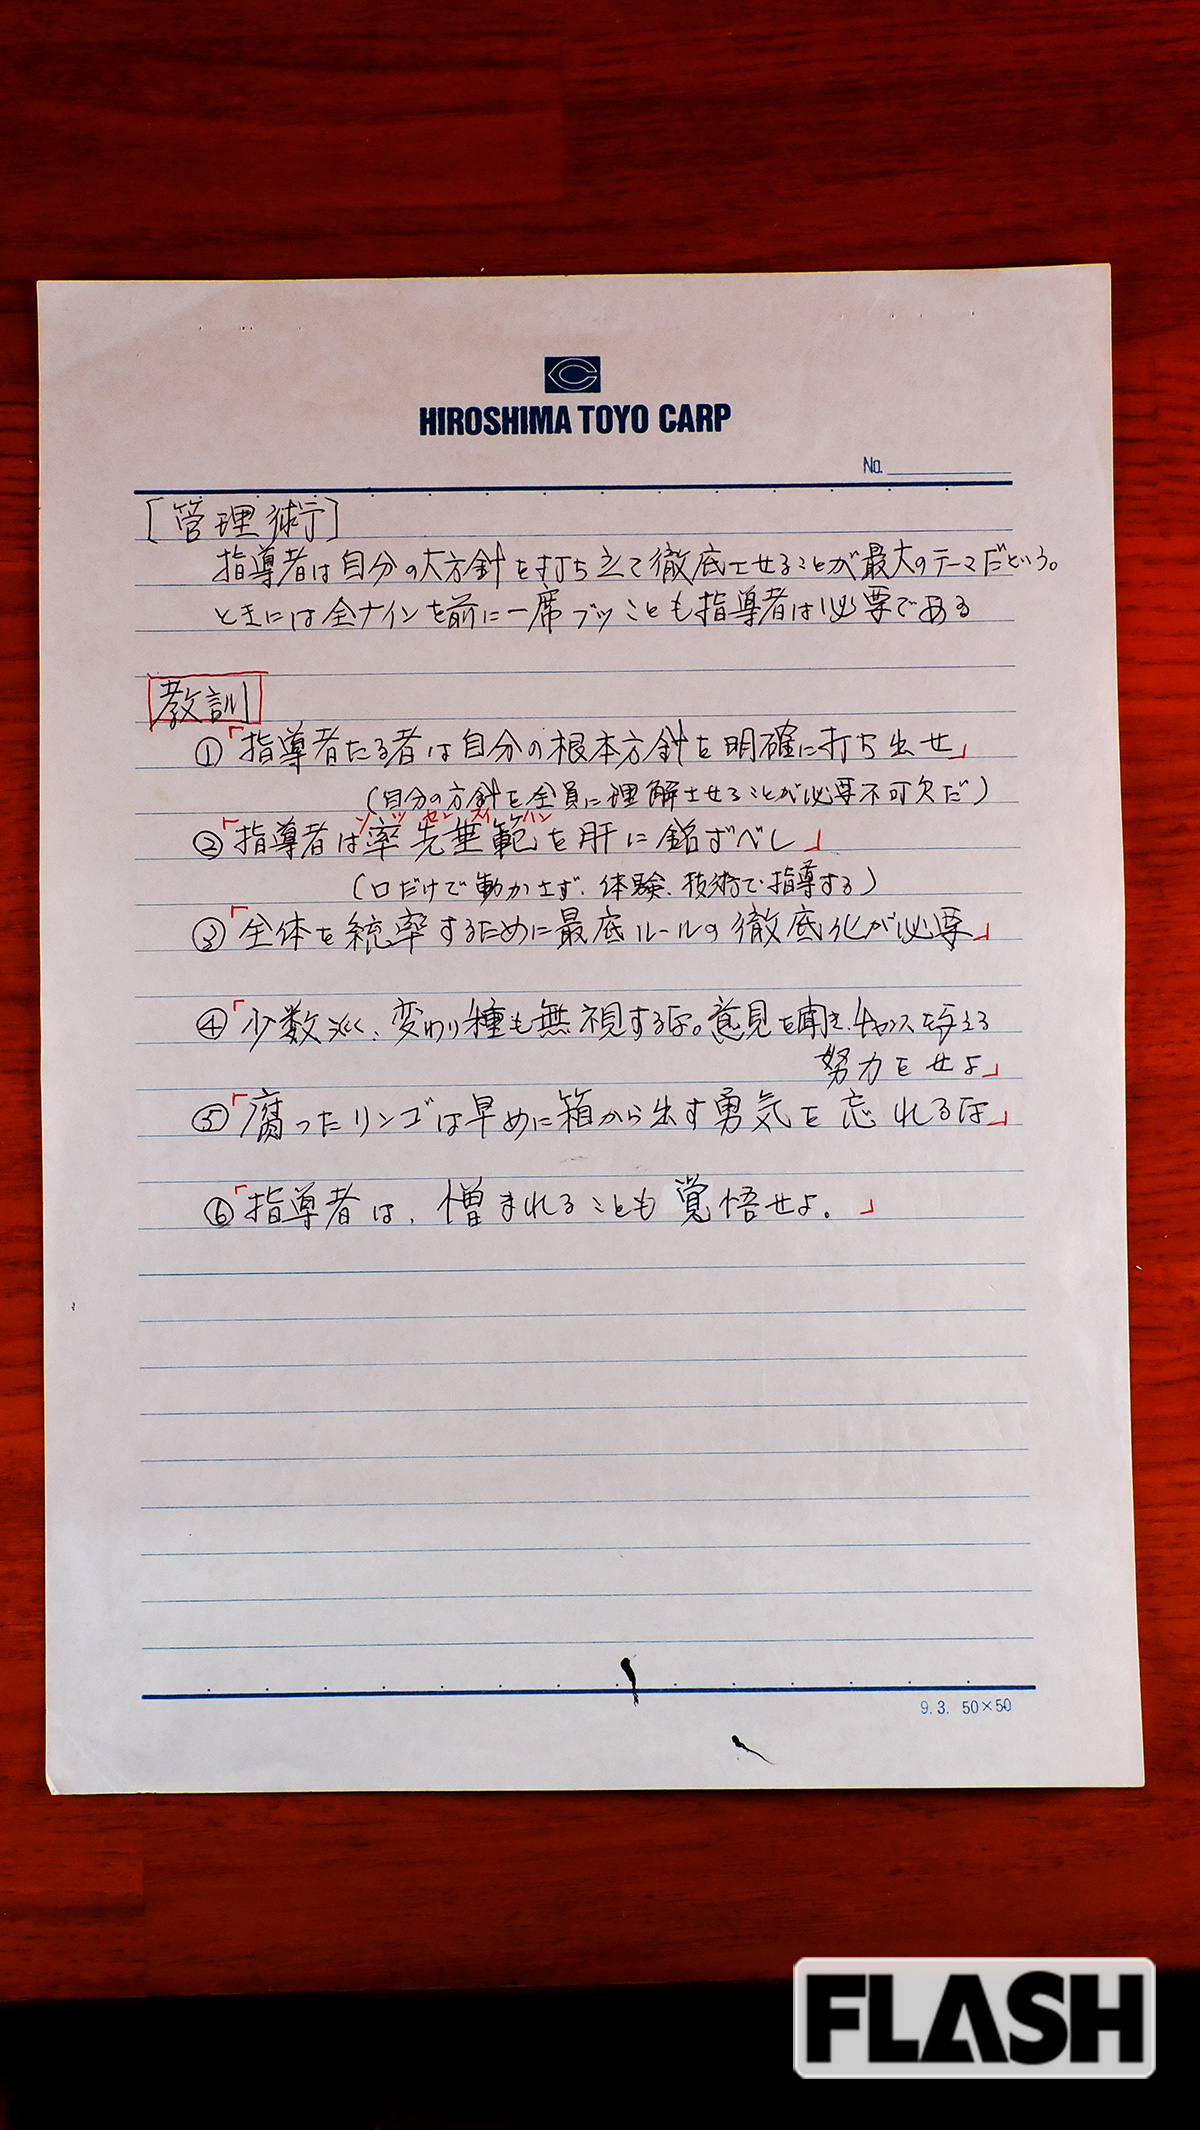 HIROSHIMA TOYO CARP
No.
[管理術]
指導者は自分の大方針を打ち立て徹底させることが最大のテーマだという。
ときには全ナインを前に一席ブツことも指導者は必要である
教訓
①「指導者たる者は自分の根本方針を明確に打ち出せ」
(自分の方針を全員に理解させることが必要不可欠だ)
ソッセンスイハン
②「指導者は率先垂範を肝に銘ずべし」
(口だけで動かさず、体験、技術で指導する)
③「全体を統率するために最底ルールの徹底化が必要」
④「少数派、変わり種も無視するな。意見を聞き、チャンスを与える
努力をせよ」
⑤「腐ったリンゴは早めに箱から出す勇気を忘れるな」
⑥「指導者は、憎まれることも覚悟せよ。」
9.3. 50×50
FLASH